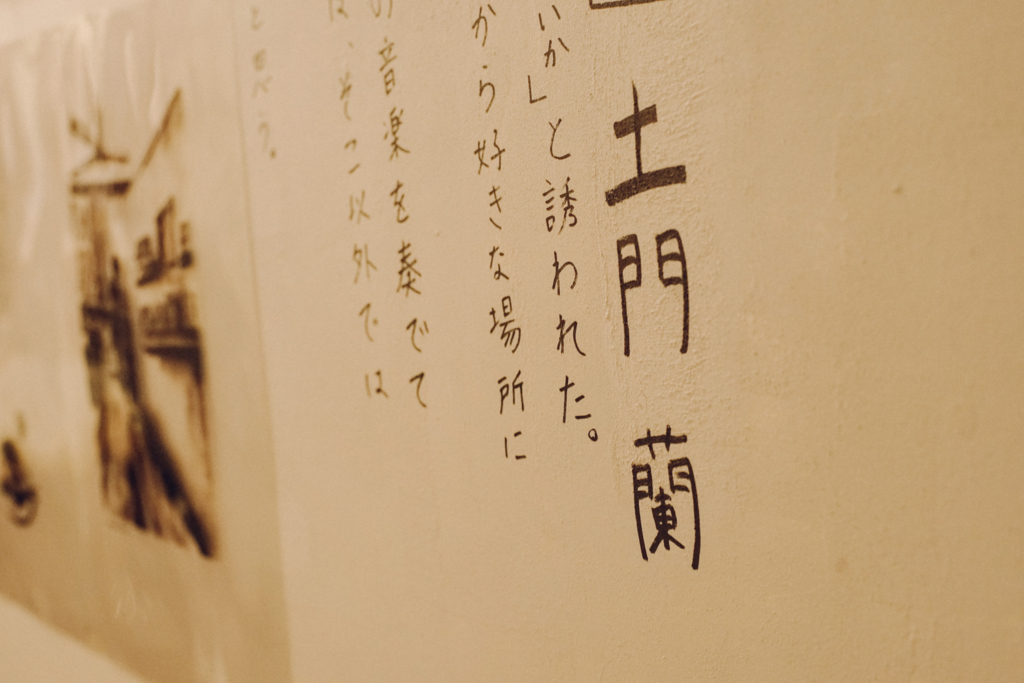 土門 蘭
いか」と誘われた。
から好きな場所に
の音楽を奏でて
は、そこ以外では
と思う。